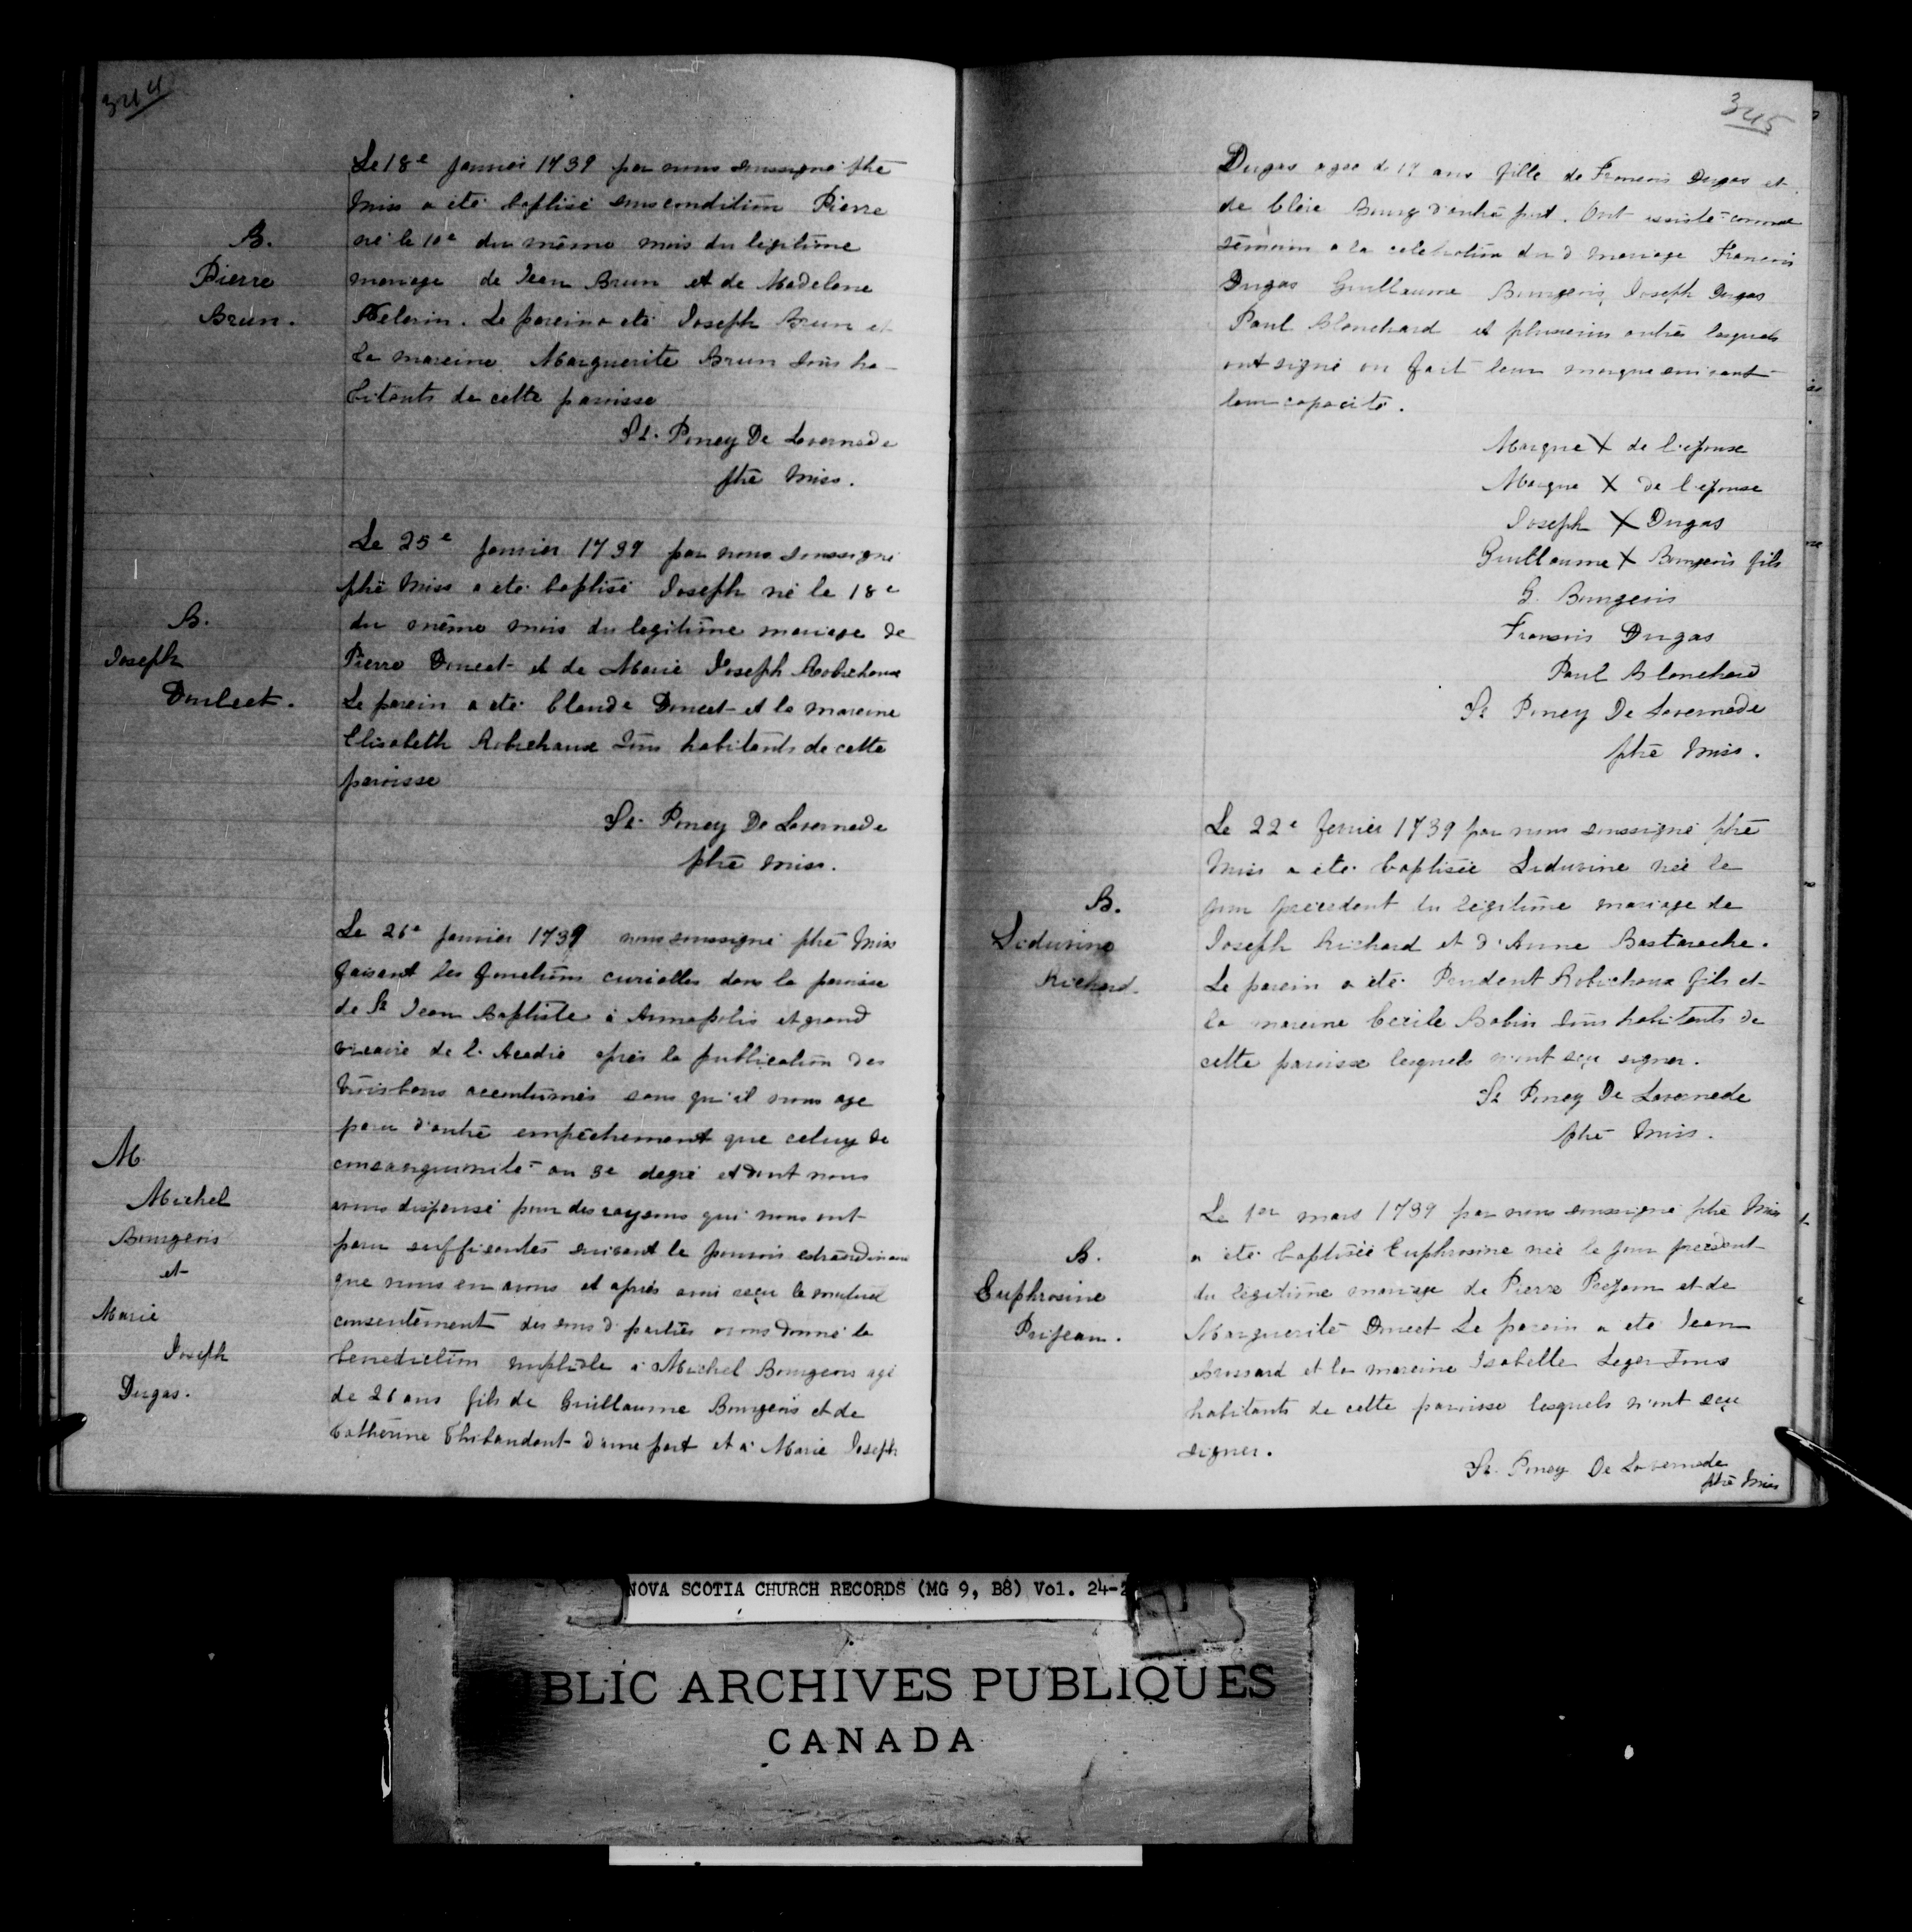 344
Le 18e janvier 1739 par nous soussigné ptre
Miss a été baptisé sous condition Pierre
B.
né le 10e du même mois du légitime
Pierre
mariage de Jean Brun et de Madelene
Brun.
Pelerin. Le parein a été Joseph Brun et
la mareine Marguerite Brun tous ha-
bitants de cette paroisse
St. Poncy De Lavernede
ptre Miss.
Le 25e janvier 1739 par nous soussigné
ptre Miss a été baptisé Joseph né le 18e
B.
du même mois du legitime mariage de
Joseph
Pierre Doucet et de Marie Joseph Robichaux
Doulcet.
Le parein a été Claude Doucet et la mareine
Elisabeth Robichaux tous habitants de cette
paroisse
St. Poncy De Lavernede
ptre miss.
Le 26e janvier 1739 nous soussigné ptre Miss
faisant les fonctions curialles dans la paroisse
de St Jean Baptiste à Annapolis et grand
vicaire de l'Acadie après la publication des
trois bans accoutumés sans qu'il nous aye
paru d'autre empêchement que celuy de
M.
consanguinité au 3e degré et dont nous
Michel
avons dispensé pour des raysons qui nous ont
Bourgeois
paru suffisantes suivant le pouvoir extraordinaire
et
que nous en avons et après avoir reçu le mutuel
Marie
consentement des sus d parties avons donné la
Joseph
benediction nuptiale à Michel Bourgeois agé
Dugas.
de 26 ans fils de Guillaume Bourgeois et de
Catherine Thibaudaut d'une part et à Marie Joseph
345
Dugas agée de 17 ans fille de Francois Dugas et
de Cleie Bourg d'autre part. Ont assisté comme
témoin a la celebration du d mariage Francois
Dugas Guillaume Bourgeois, Joseph Dugas
Paul Blanchard et plusieurs autres lesquels
ont signé ou fait leur marque suivant
leur capacité.
Marque X de l'epouse
Marque X de l'epouse
Joseph X Dugas
Guillaume X Bourgeois fils
G. Bourgeois
Francois Dugas
Paul Blanchard
St Poncy De Lavernede
ptre Miss.
Le 22e fevrier 1739 par nous soussigné ptre
Miss a été baptisée Ludivine née le
B.
jour précedent du légitime mariage de
Ludivine
Joseph Richard et d'Anne Bastarache.
Richard.
Le parein a été Prudent Robichaux fils et
la mareine Cecile Babin tous habitants de
cette paroisse lesquels n'ont sçu signer.
St Poncy De Lavernede
ptre Miss.
Le 1er mars 1739 par nous soussigné ptre Miss
B.
a été baptisée Euphrosine née le jour precedent
Euphrosine
du légitime mariage de Pierre Prejean et de
Prejean.
Marguerite Doucet Le parein a été Jean
Brossard et la mareine Isabelle Leger tous
habitants de cette paroisse lesquels n'ont sçu
signer.
St. Poncy De Lavernede
ptre Miss
NOVA SCOTIA CHURCH RECORDS (MG 9, B8) Vol. 24-2
BLIC ARCHIVES PUBLIQUES
CANADA